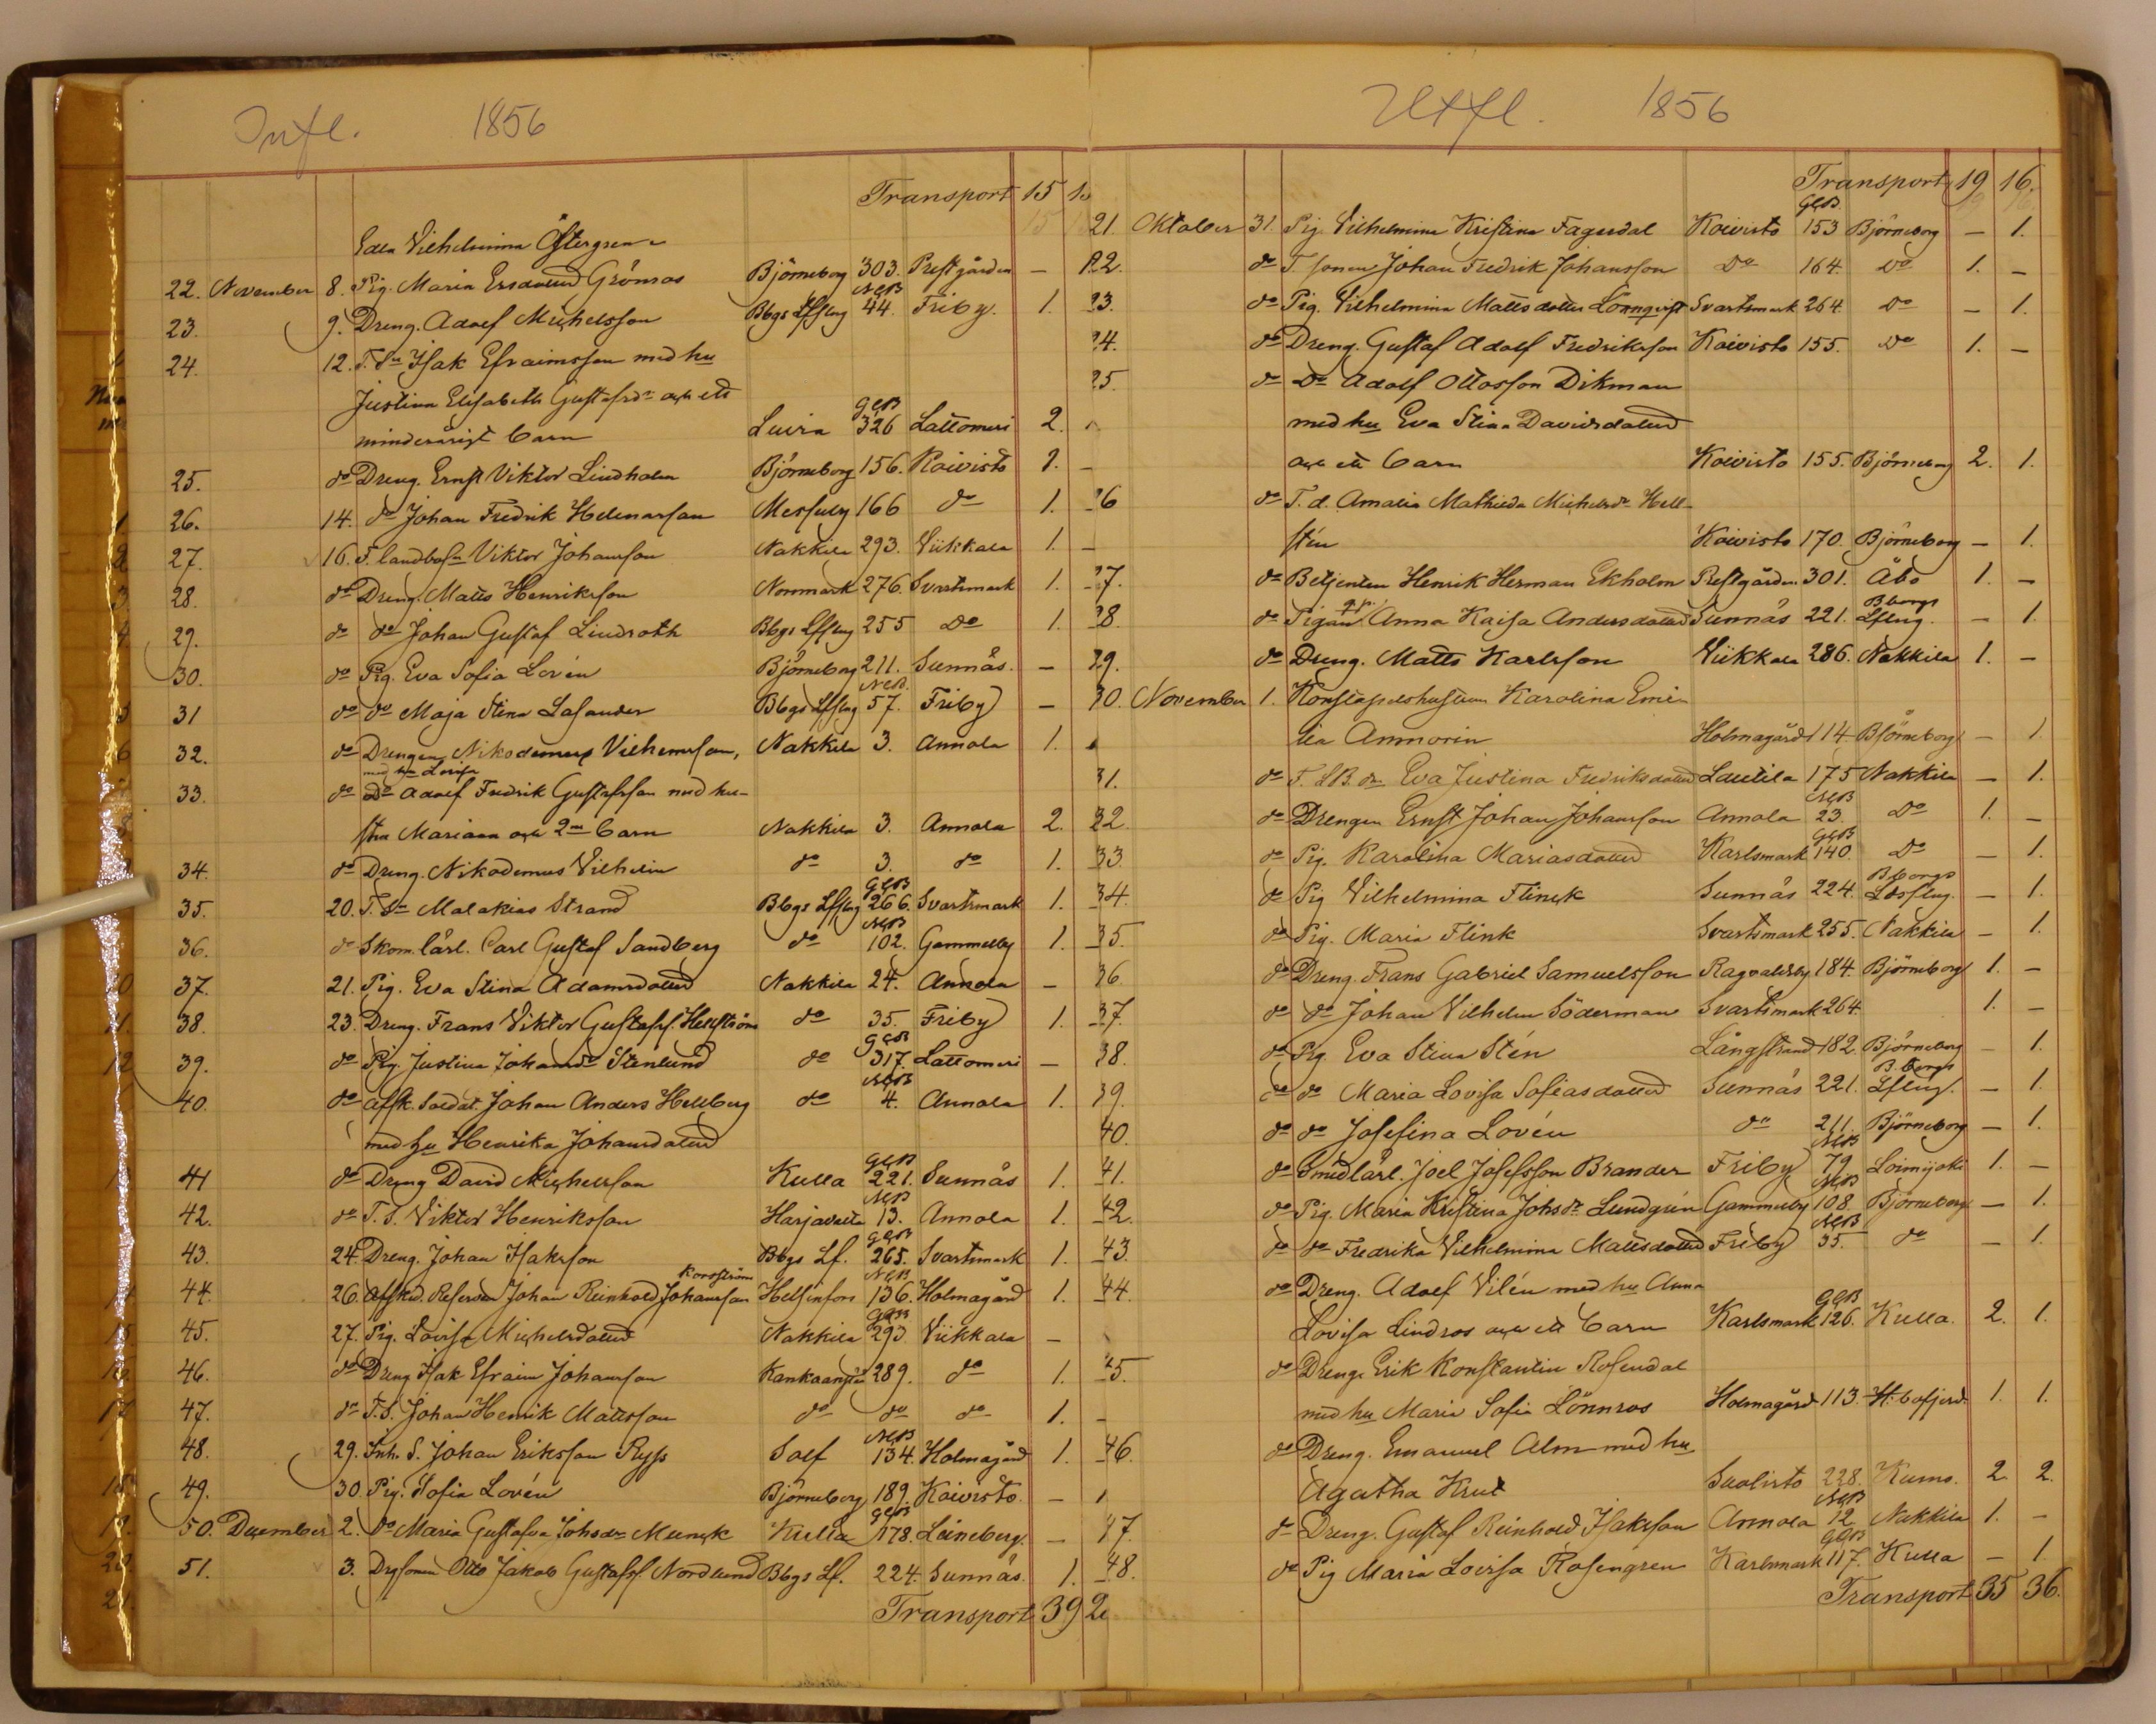 Infl. 1856
Transport 15
Edla Vilhelmina Östergren
22. November 8. Pig. Maria Ersdotter Grönroos Björneborg 303. Prestgården —
23. 9. Dreng. Adolf Michelsson Bbgs Lfslg NCB 44. Friby. 1.
24. 12. T. Sn Isak Efraimsson med hu
Justina Elisabeth Gustafsdr och ett
minderårigt barn Luvia GCB 326 Lattomeri 2.
25. do Dreng. Ernst Viktor Lindholm Björneborg 156. Koivisto 1. —
26. 14. do Johan Fredrik Helenarson 166 do 1.
27. 16. T. landbosn Viktor Johansson Nakkila 293. Viikkala 1. —
28. do Dreng. Matts Henriksson Norrmark 276. Svartsmark 1.
29. do do Johan Gustaf Lindroth Bbgs Lfslg 255 Do 1.
30. do Pig. Eva Sofia Lovén Björneborg 211. Sunnäs. —
31 do do Maja Stina Lasander Bbgs Lfslg NCB. 57. Friby —
32. do Drengen Nikodemus Vilhemsson, Nakkila 3. Annola 1.
med hu Lovisa
33. do Do Adolf Fredrik Gustafsson med hu-
stru Mariana och 2ne barn Nakkila 3. Annola 2.
34. do Dreng. Nikodemus Vilhelm do 3. do 1.
35. 20. T. Sn Malakias Strand Bbgs Lfslg GCB 266. Svartsmark 1.
36. do Skom. lärl. Carl Gustaf Sandberg do NCB 102. Gammelby 1.
37. 21. Pig. Eva Stina Adamsdotter Nakkila 24. Annola —
38. 23. Dreng. Frans Viktor Gustafss. Hellström do 35. Friby 1.
39. do Pig. Justina Johansdr Stenlund do GCB 317. Lattomeri —
40. do Afsk. Soldat. Johan Anders Hellberg do NCB 4. Annola 1.
med hu Henrika Johansdotter
41 do Dreng David Michelsson Kulla GCB 221. Sunnäs 1.
42. do T. S. Viktor Henriksson Harjavalta NCB 13. Annola 1.
43. 24. Dreng. Johan Isaksson Bbgs Lf. GCB 265. Svartsmark 1.
44. 26. Afsked. Reserven Johan Reinhold Johansson Korsström Helsinfors NCB 136. Holmagård 1.
45. 27. Pig. Lovisa Michelsdotter Nakkila GCB 293. Viikkala —
46. do Dreng Isak Efraim Johansson Kankaanpää 289. do 1.
47. do T. S. Johan Henrik Mattsson do do do 1.
48. 29. Inh. S. Johan Eriksson Ryss Solf NCB 134. Holmagård 1.
49. 30. Pig. Sofia Lovén Björneborg 189. Koivisto. —
50. December 2. Do Maria Gustafva Johsdr Munck Kulla GCB 178. Leineberg. —
51. 3. Drgsonen Otto Jakob Gustafss Nordlund Bbgs Lf. 224. Sunnäs. 1.
Transport 39
Utfl. 1856
Transport 19 16.
21. Oktober 31. Pig. Vilhelmina Kristina Fagerdal Koivisto GCB 153 Björneborg — 1.
22. do T. sonen Johan Fredrik Johansson Do 164. Do 1. —
23. do Pig. Vilhelmina Matts dotter Lönnqvist Svartsmark 264. Do — 1.
24. do Dreng. Gustaf Adolf Fredriksson Koivisto 155. Do 1. —
25 do Do Adolf Ottosson Dikman
med hu Eva Stina Davidsdotter
och ett barn Koivisto 155. Björneborg 2. 1.
26 do T. d. Amalia Mathilda Michelsdr Hell-
stén Koivisto 170. Björneborg — 1.
27. do Betjenten Henrik Herman Ekholm Prestgården 301. Åbo 1. —
28. do Pigan Anna Kaisa Andersdotter Sunnäs 221. Bborgs Lfslg. — 1.
29. do Dreng. Matts Karlsson Viikkala 286. Nakkila 1. —
30. November 1. Konstapelshustrun Karolina Emi-
lia Ammorin Holmagård 114 Björneborg — 1
31. do T. Eva Justina Fredriksdotter Lautila 175 Nakkila — 1.
32 do Drengen Ernst Johan Johansson Annola NCB 23. Do 1. —
33 do Pig. Karolina Mariasdotter Karlsmark GCB 140. Do — 1.
34. do Pig Vilhelmina Flinck Sunnäs 224. Bborgs Ldsflg. — 1.
35. do Pig. Maria Flink Svartsmark 255. Nakkila — 1.
36. do Dreng. Frans Gabriel Samuelsson Ragvaldsby 184. Björneborg 1. —
37. do do Johan Vilhelm Söderman Svartsmark 264. 1. —
38. do Pig Eva Stina Stén Långstrand 182. Björneborg — 1.
39. do do Maria Lovisa Sofiasdotter Sunnäs 221. B. borgs Lfslg. — 1.
40. do do Josefina Lovén do 211. Björneborg — 1.
41. do Smedlärl. Joel Josefsson Brander Friby NCB 79. Loimijoki 1. —
42. do Pig. Maria Kristina Johsdr Lundgrén Gammelby NCB 108. Björneborg — 1.
43. do do Fredrika Vilhelmina Mattsdotter Friby NCB 35. do — 1.
44. do Dreng. Adolf Vilén med hu Anna
Lovisa Lindroos och ett barn Karlsmark GCB 126. Kulla. 2. 1.
45. do Dreng. Erik Konstantin Rosendal
med hu Maria Sofia Lönnroos Holmagård 113. H: bofjerd. 1. 1.
46. do Dreng. Emanuel Alm med hu
Agatha Krut Suolisto 228. Kumo. 2. 2.
47. do Dreng. Gustaf Reinhold Isaksson Annola NCB 12 Nakkila 1. —
48. do Pig Maria Lovisa Rosengren Karlsmark GCB 117. Kulla — 1
Transport 35 36.